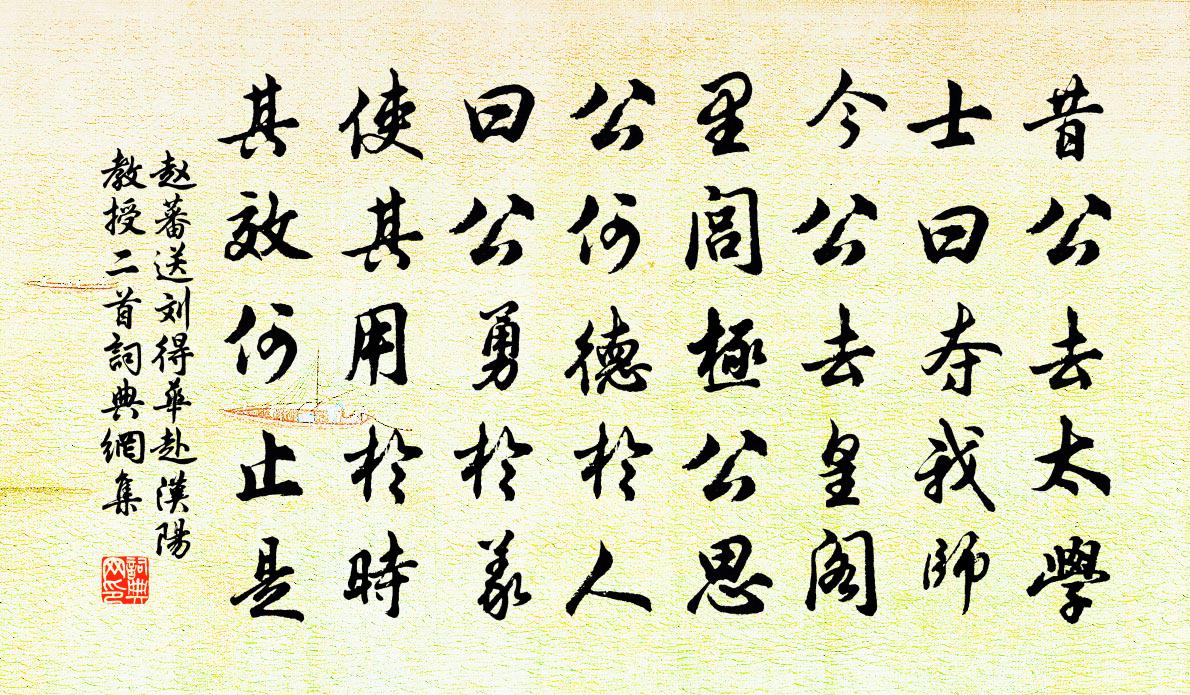 昔公去太學
士曰夺我師
今公去皇阁
里閭極公思
公何德於人
曰公勇於義
使其用於時
其效何止是
赵蕃送刘得華赴漢陽
教授二首詞典網集
詞典网印